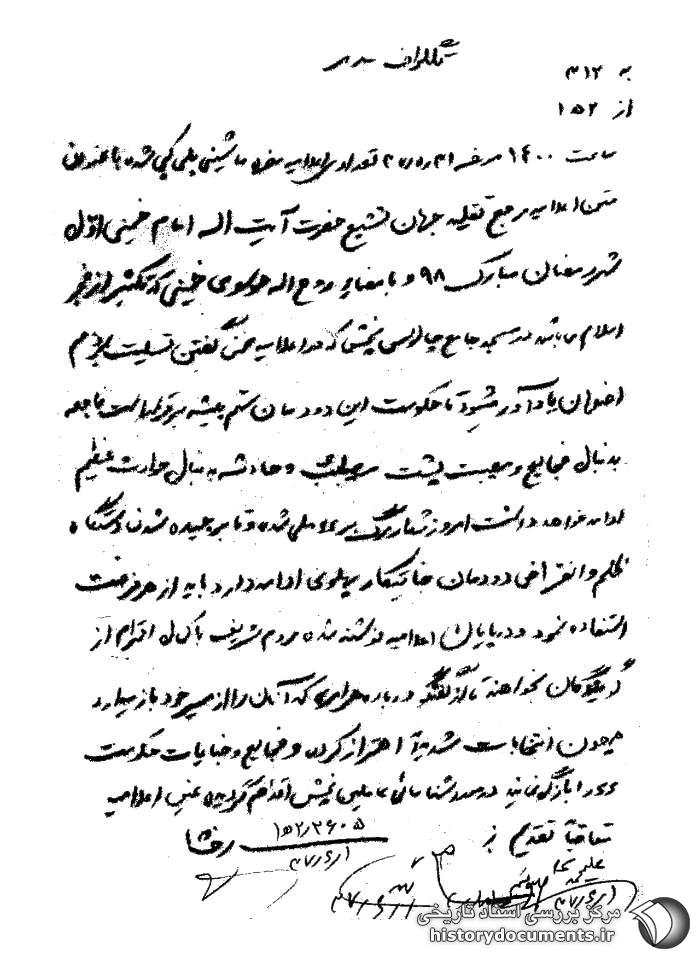 تلگراف
به ۳۱۲
از ۱۵۲
ساعت ۱۴۰۰ تعدادی اعلامیه ماشینی پلی کپی شده با عنوان
متن اعلامیه مرجع تقلید جهان تشیع حضرت آیت اله امام خمینی اول
شهر رمضان مبارک ۹۸ و با امضای روح اله موسوی خمینی که
اسلام میباشد در مسجد جامع چالوس پخش که در اعلامیه ضمن گفتن تسلیت
یادآور میشود تا حکومت این دودمان ستم پیشه برقرار است فاجعه
بدنبال فجایع و مصیبت پشت مصیبت و حادثه به دنبال حوادث عظیم
ادامه خواهد داشت امروز شعار مرگ بر شاه و تا برچیده شدن دستگاه
ظلم و انقراض دودمان جنایتکار پهلوی ادامه دارد باید از هر فرصت
استفاده نمود و در پایان اعلامیه نوشته شده مردم شریف با کمال احترام از
گویندگان بخواهند تا از گفتگو درباره هر امری که آنان را از مسیر خود باز میدارد
همچون انتخابات شدیداً احتراز کرده و فجایع و جنایات حکومت
را بازگو نمایند در مورد شناسائی عاملین پخش اقدام گردیده عین اعلامیه
متعاقباً تقدیم
رخشا
مرکز بررسی اسناد تاریخی
historydocuments.ir